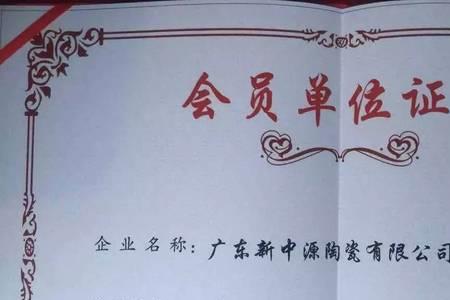 会员单位证
企业名称：广东新中源陶瓷有限公司